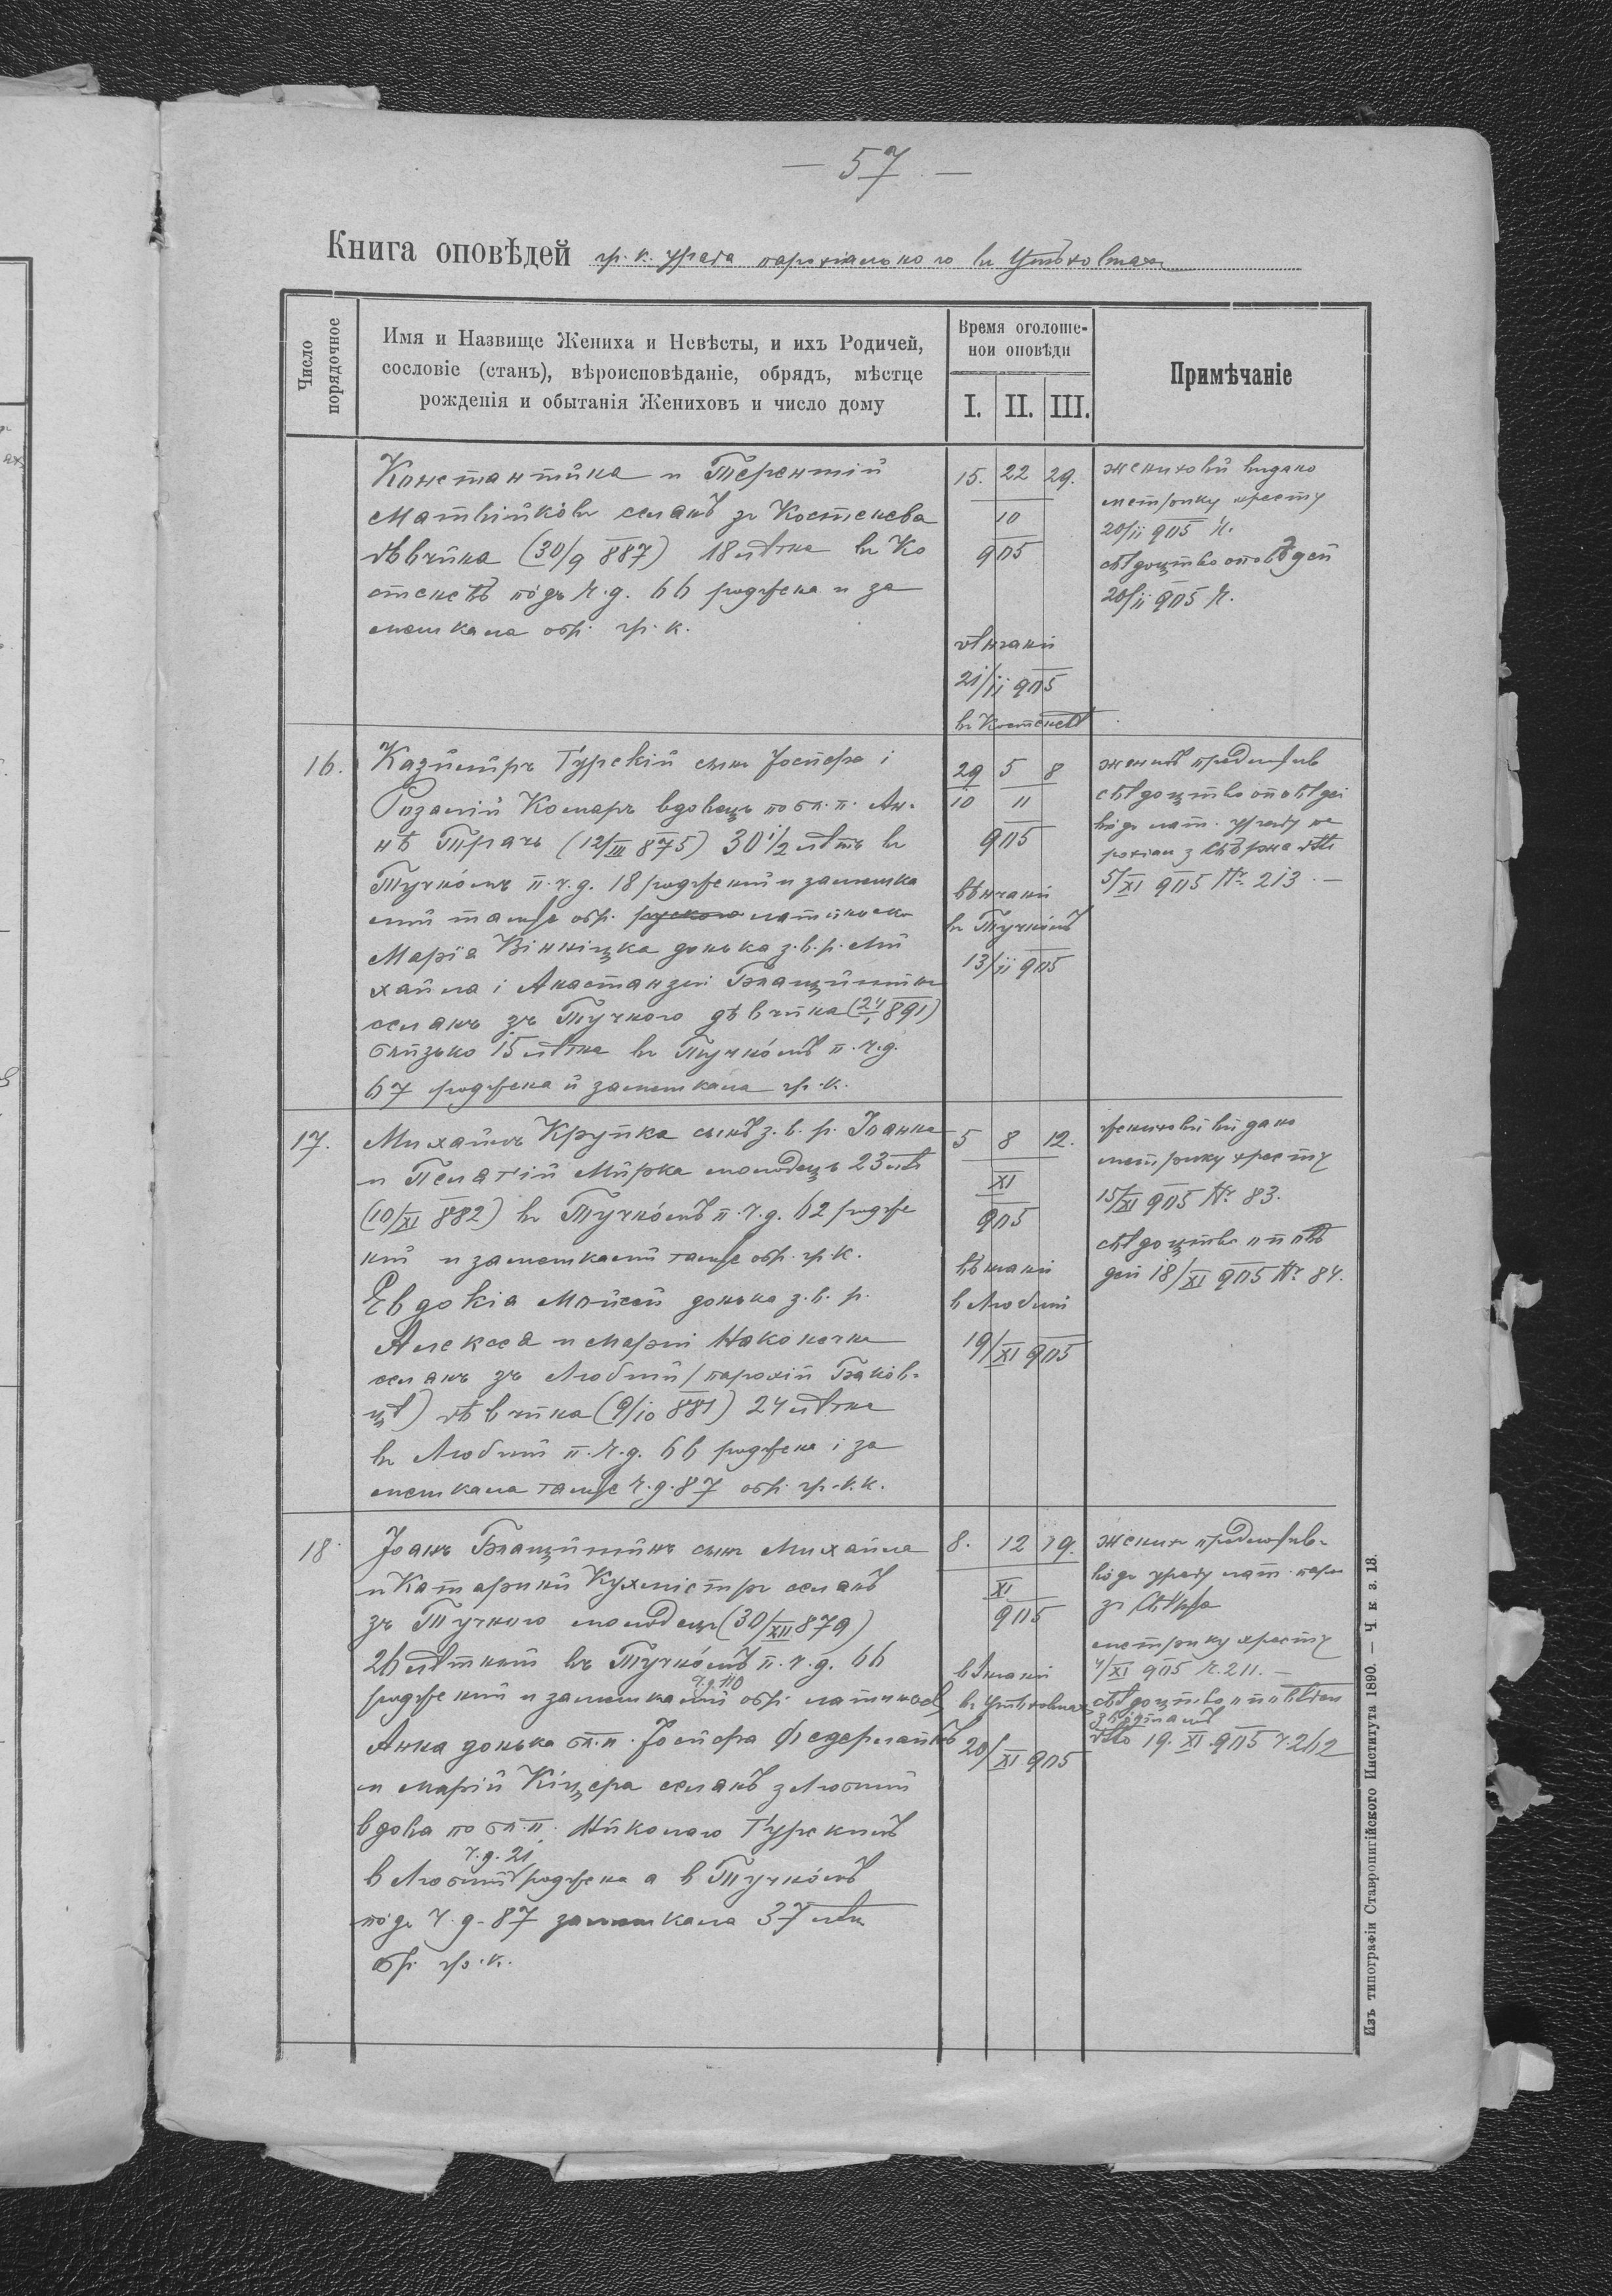 — 57 —
Книга оповѣдей гр. к. уряда парохіального въ
Число порядочное
Имя и Назвище Жениха и Невѣсты, и ихъ Родичей,
сословіе (станъ), вѣроисповѣданіе, обрядъ, мѣстце
рожденія и обытанія Жениховъ и число дому
Время оголоше-
нои оповѣди
I. II. III.
Примѣчаніе
Константина и Терентій
Матвійкôвъ селянъ зъ Костенева
дѣвчина (30/9 887) 18 лѣтна въ Ко
стеневѣ пôдъ ч. д. 66 роджена и за
мешкала обр. гр. к.
15. 22 29.
10
905
вѣнчаній
21/11 905
въ Костеневѣ
женихови видано
метрику хресту
20/11 905 Ч.
свѣдоцтво оповѣдей
20/11 905 Ч.
16.
Казимиръ Гурскій сынъ Іосифа і
Розаліи Комаръ вдовецъ по бл. п. Ан-
нѣ Ткачъ (12/III 875) 30 1/2 лѣтъ въ
Тучнôмъ п. ч. д. 18 родженый и замешка
лый тамже обр. руского латиньско
Марія Вінніцка донька з. в. р. Ми
хайла і Анастазіи Блащишинъ
селянъ зъ Тучного дѣвчина (24/1 891)
близько 15 лѣтна въ Тучнôмъ п. ч. д.
67 роджена и замешкала гр. к.
29 5 8
10 11
905
вѣнчаній
въ Тучнôмъ
13/11 905
женихъ предложивъ
свѣдоцтво оповѣдей
вôдъ лат. уряду па
рохіяль. з Свѣржа
5/XI 905 Nr. 213 —
17.
Михайлъ Крупка сынъ з. в. р. Іоанна
и Пелагіи Мирка молодецъ 23 лѣт
(10/XI 882) въ Тучнôмъ п. ч. д. 62 родже
ный и замешкалый тамже обр. гр. к.
Евдокія Мойсей донька з. в. р.
Алексея и Маріи Наконечна
селянъ зъ Любший / парохіи Баков-
цѣ) дѣвчина (9/10 881) 24 лѣтна
въ Любший п. ч. д. 66 роджена і за
мешкала тамже ч. д. 87 обр. гр. к.
5 8 12.
XI
905
вѣнчаній
в Любший
19/XI 905
женихови видано
метрику хресту
15/XI 905 Nr. 83.
свѣдоцтво оповѣ
дей 18/XI 905 Nr. 84.
18.
Іоанъ Блащишинъ сынъ Михайла
и Катарины Кухмістръ селянъ
зъ Тучного молодецъ (30/XII 879)
26 лѣтный въ Тучнôмъ п. ч. д. 66
родженый и замешкалый обр. латиньс
Анна донька бл. п. Іосифа Федермайєръ
и Маріи Кіцера селянъ з Любший
вдова по бл. п. Николаю Гурскимъ
ч. д. 21
в Любший роджена а в Тучнôмъ
пôдъ ч. д. 87 замешкала 37 лѣтн
обр. гр. к.
8. 12 19.
XI
905
вѣнчаній
20/XI 905
женихъ предложивъ
вôдъ уряду лат. парох
зъ Свѣржа
метрику хресту
4/XI 905 ч. 211. —
свѣдоцтво оповѣдей
19. XI 905 ч. 262
Изъ типографіи Ставропигійского Института 1890. — Ч. к. з. 18.